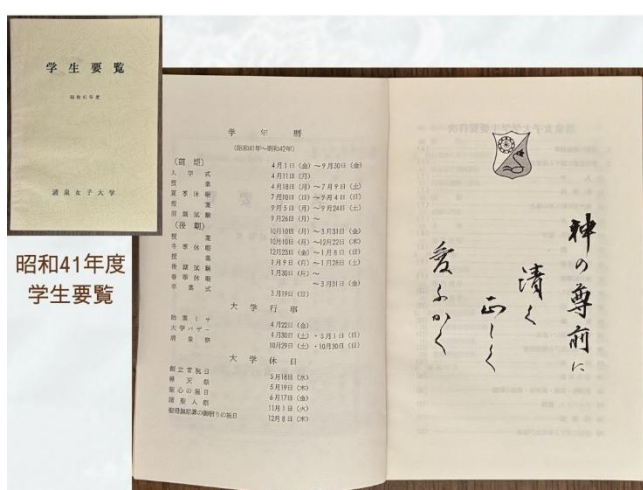 学生要覧
昭和41年度
清泉女子大学
昭和41年度
学生要覧
学年暦
(昭和41年~昭和42年)
(前期) 4月1日(金)~9月30日(金)
入学式 4月11日(月)
授業 4月18日(月)~7月9日(土)
夏季休暇 7月10日(日)~9月4日(日)
授業 9月5日(月)~9月24日(土)
前期試験 9月26日(月)~
(後期) 10月10日(月)~3月31日(金)
授業 10月10日(月)~12月22日(木)
冬季休暇 12月23日(金)~1月8日(日)
授業 1月9日(月)~1月28日(土)
後期試験 1月30日(月)~
春季休暇 ~3月31日(金)
卒業式 3月19日(日)
大学行事
4月22日(金)
大学バザー 4月30日(土)・5月1日(日)
清泉祭 10月29日(土)・10月30日(日)
大学休日
創立者祝日 5月18日(水)
昇天祭 5月19日(木)
聖心の祝日 6月17日(金)
諸聖人祭 11月1日(火)
聖母無原罪の御宿りの祝日 12月8日(木)
神の尊前に
清く
正しく
愛ふかく